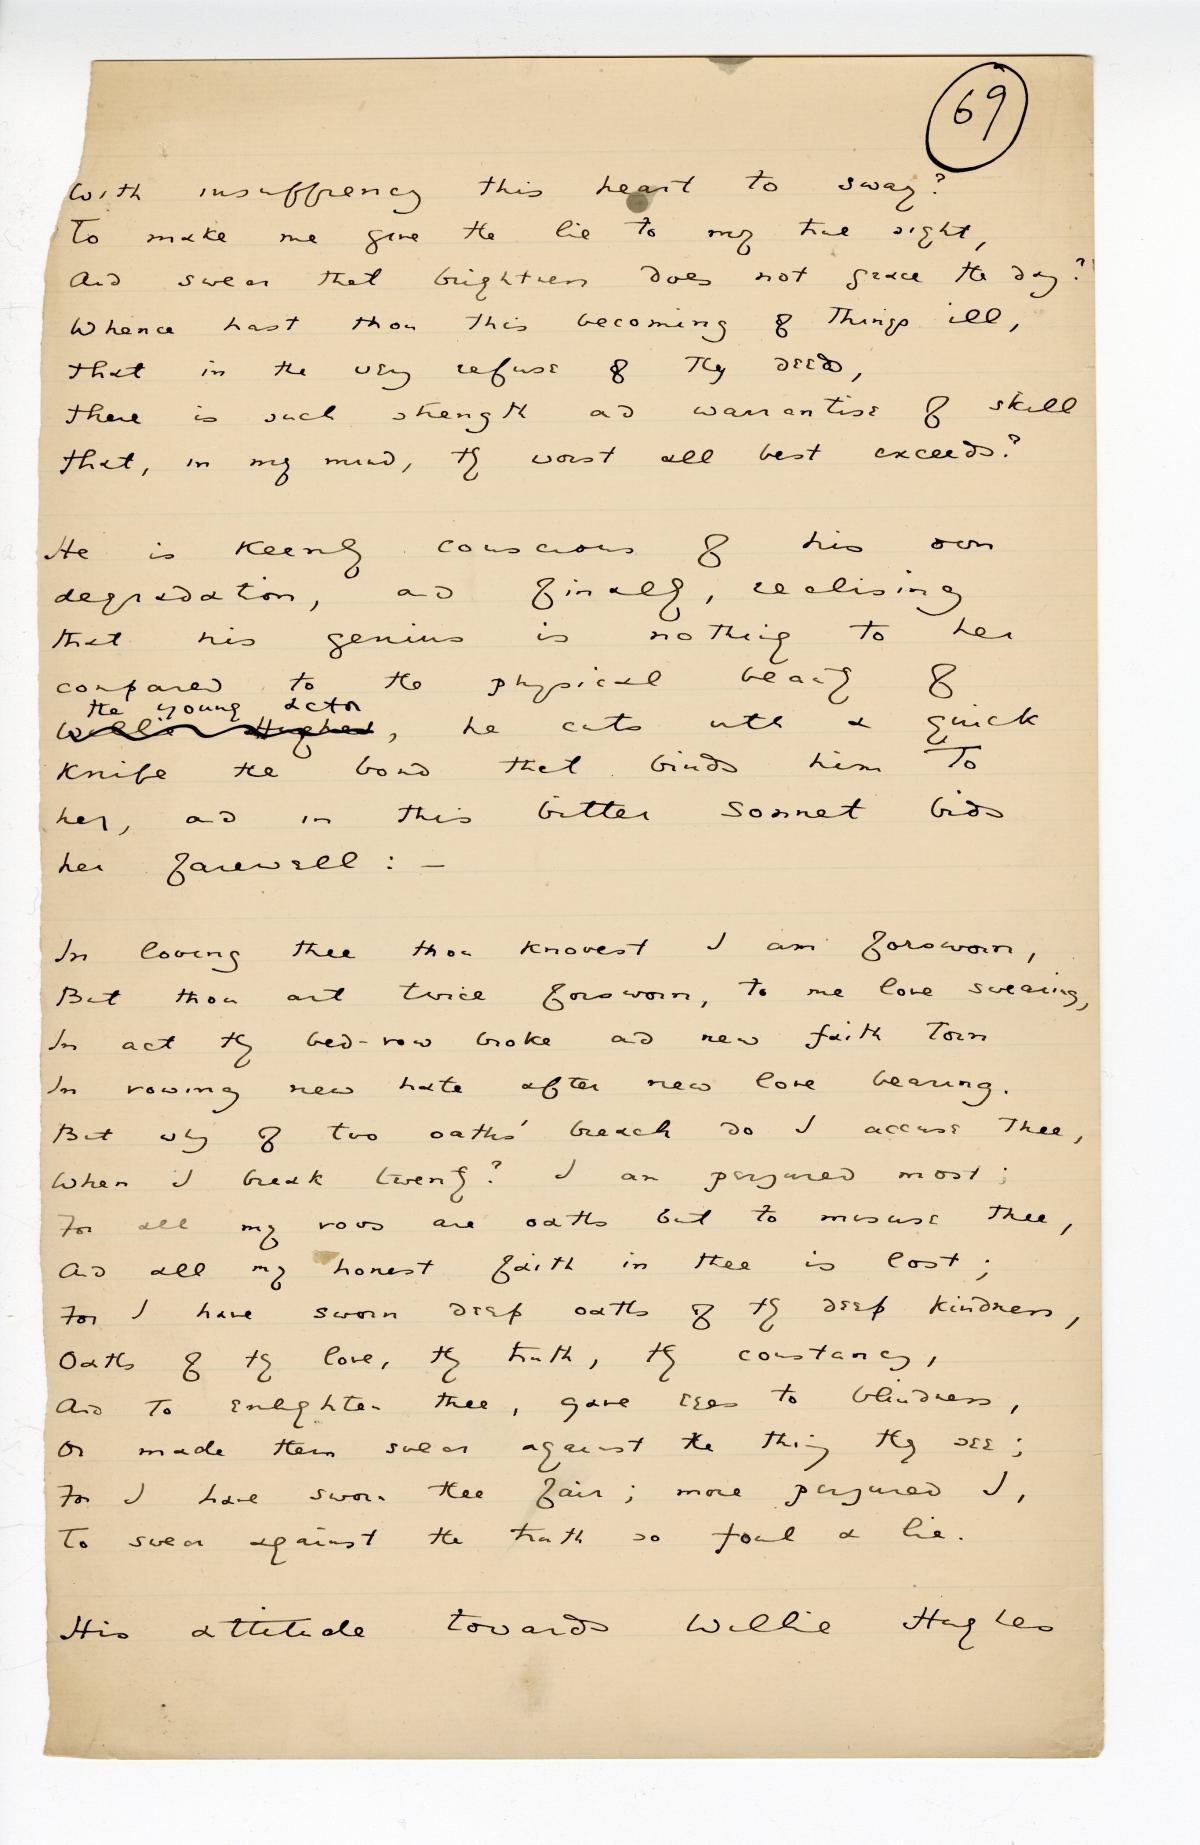 69
With insufficiency this heart to sway?
To make me give the lie to my true sight,
And swear that brightness does not grace the day?
Whence hast thou this becoming of things ill,
That in the very refuse of thy deeds,
There is such strength and warrantise of skill
That, in my mind, thy worst all best exceeds?
He is keenly conscious of his own
degradation, and finally, realising
that his genius is nothing to her
compared to the physical beauty of
the young actor
Willie Hughes, he cuts with a quick
knife the bond that binds him to
her, and in this bitter sonnet bids
her farewell : —
In loving thee thou knowest I am forsworn,
But thou art twice forsworn, to me love swearing,
In act thy bed-vow broke and new faith torn
In vowing new hate after new love bearing.
But why of two oaths' breach do I accuse thee,
When I break twenty? I am perjured most;
For all my vows are oaths but to misuse thee,
And all my honest faith in thee is lost;
For I have sworn deep oaths of thy deep kindness,
Oaths of thy love, thy truth, thy constancy,
And to enlighten thee, gave eyes to blindness,
Or made them swear against the thing they see;
For I have sworn thee fair; more perjured I,
To swear against the truth so foul a lie.
His attitude towards Willie Hughes